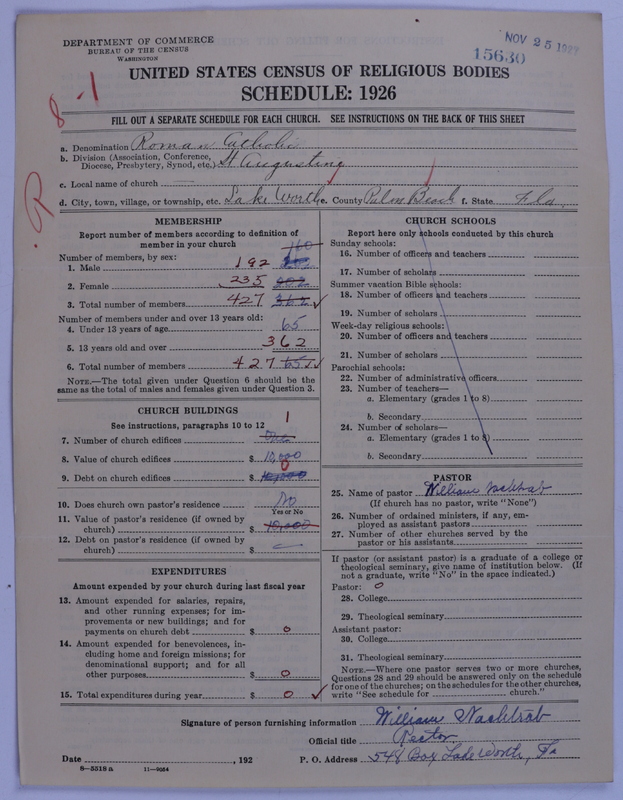 DEPARTMENT OF COMMERCE
BUREAU OF THE CENSUS
WASHINGTON
NOV 25 1927
15630
UNITED STATES CENSUS OF RELIGIOUS BODIES
SCHEDULE: 1926
8-1
FILL OUT A SEPARATE SCHEDULE FOR EACH CHURCH. SEE INSTRUCTIONS ON THE BACK OF THIS SHEET
a. Denomination Roman Catholic
b. Division (Association, Conference, Diocese, Presbytery, Synod, etc.) St Augustine
c. Local name of church —
d. City, town, village, or township, etc. Lake Worth e. County Palm Beach f. State Fla.
R
MEMBERSHIP
Report number of members according to definition of
member in your church
Number of members, by sex:
160
1. Male 192
2. Female 235 202
3. Total number of members 427 362
Number of members under and over 13 years old:
4. Under 13 years of age 65
5. 13 years old and over 362
6. Total number of members 427 65
NOTE.—The total given under Question 6 should be the
same as the total of males and females given under Question 3.
CHURCH BUILDINGS
See instructions, paragraphs 10 to 12
7. Number of church edifices 1 One
8. Value of church edifices $ 10,000
9. Debt on church edifices $ 0 10,000
10. Does church own pastor's residence No
Yes or No
11. Value of pastor's residence (if owned by
church) $ 10,000
12. Debt on pastor's residence (if owned by
church) $
EXPENDITURES
Amount expended by your church during last fiscal year
13. Amount expended for salaries, repairs,
and other running expenses; for im-
provements or new buildings; and for
payments on church debt $ 0
14. Amount expended for benevolences, in-
cluding home and foreign missions; for
denominational support; and for all
other purposes $ 0
15. Total expenditures during year $ 0
CHURCH SCHOOLS
Report here only schools conducted by this church
Sunday schools:
16. Number of officers and teachers
17. Number of scholars
Summer vacation Bible schools:
18. Number of officers and teachers
19. Number of scholars
Week-day religious schools:
20. Number of officers and teachers
21. Number of scholars
Parochial schools:
22. Number of administrative officers
23. Number of teachers—
a. Elementary (grades 1 to 8)
b. Secondary
24. Number of scholars—
a. Elementary (grades 1 to 8)
b. Secondary
PASTOR
25. Name of pastor William Nachtrab
(If church has no pastor, write "None")
26. Number of ordained ministers, if any, em-
ployed as assistant pastors
27. Number of other churches served by the
pastor or his assistants
If pastor (or assistant pastor) is a graduate of a college or
theological seminary, give name of institution below. (If
not a graduate, write "No" in the space indicated.)
Pastor: 0
28. College
29. Theological seminary
Assistant pastor:
30. College
31. Theological seminary
NOTE.—Where one pastor serves two or more churches,
Questions 28 and 29 should be answered only on the schedule
for one of the churches; on the schedules for the other churches,
write "See schedule for church."
Signature of person furnishing information William Nachtrab
Official title Rector
Date , 192 P. O. Address 548 Box Lake Worth, Fa
8—5518 a 11—9064